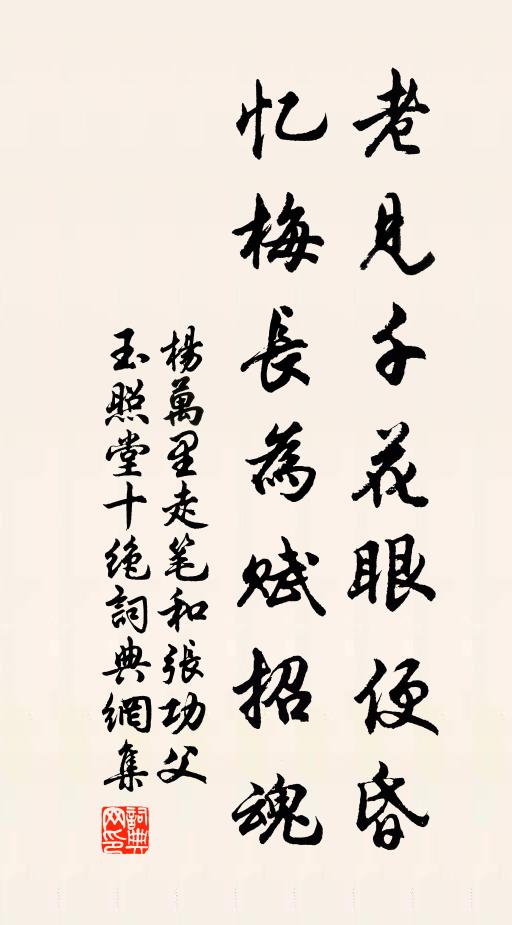 老見千花眼便昏
忆梅長為赋招魂
楊萬里走笔和張功父
玉照堂十绝詞典網集
詞典
网印